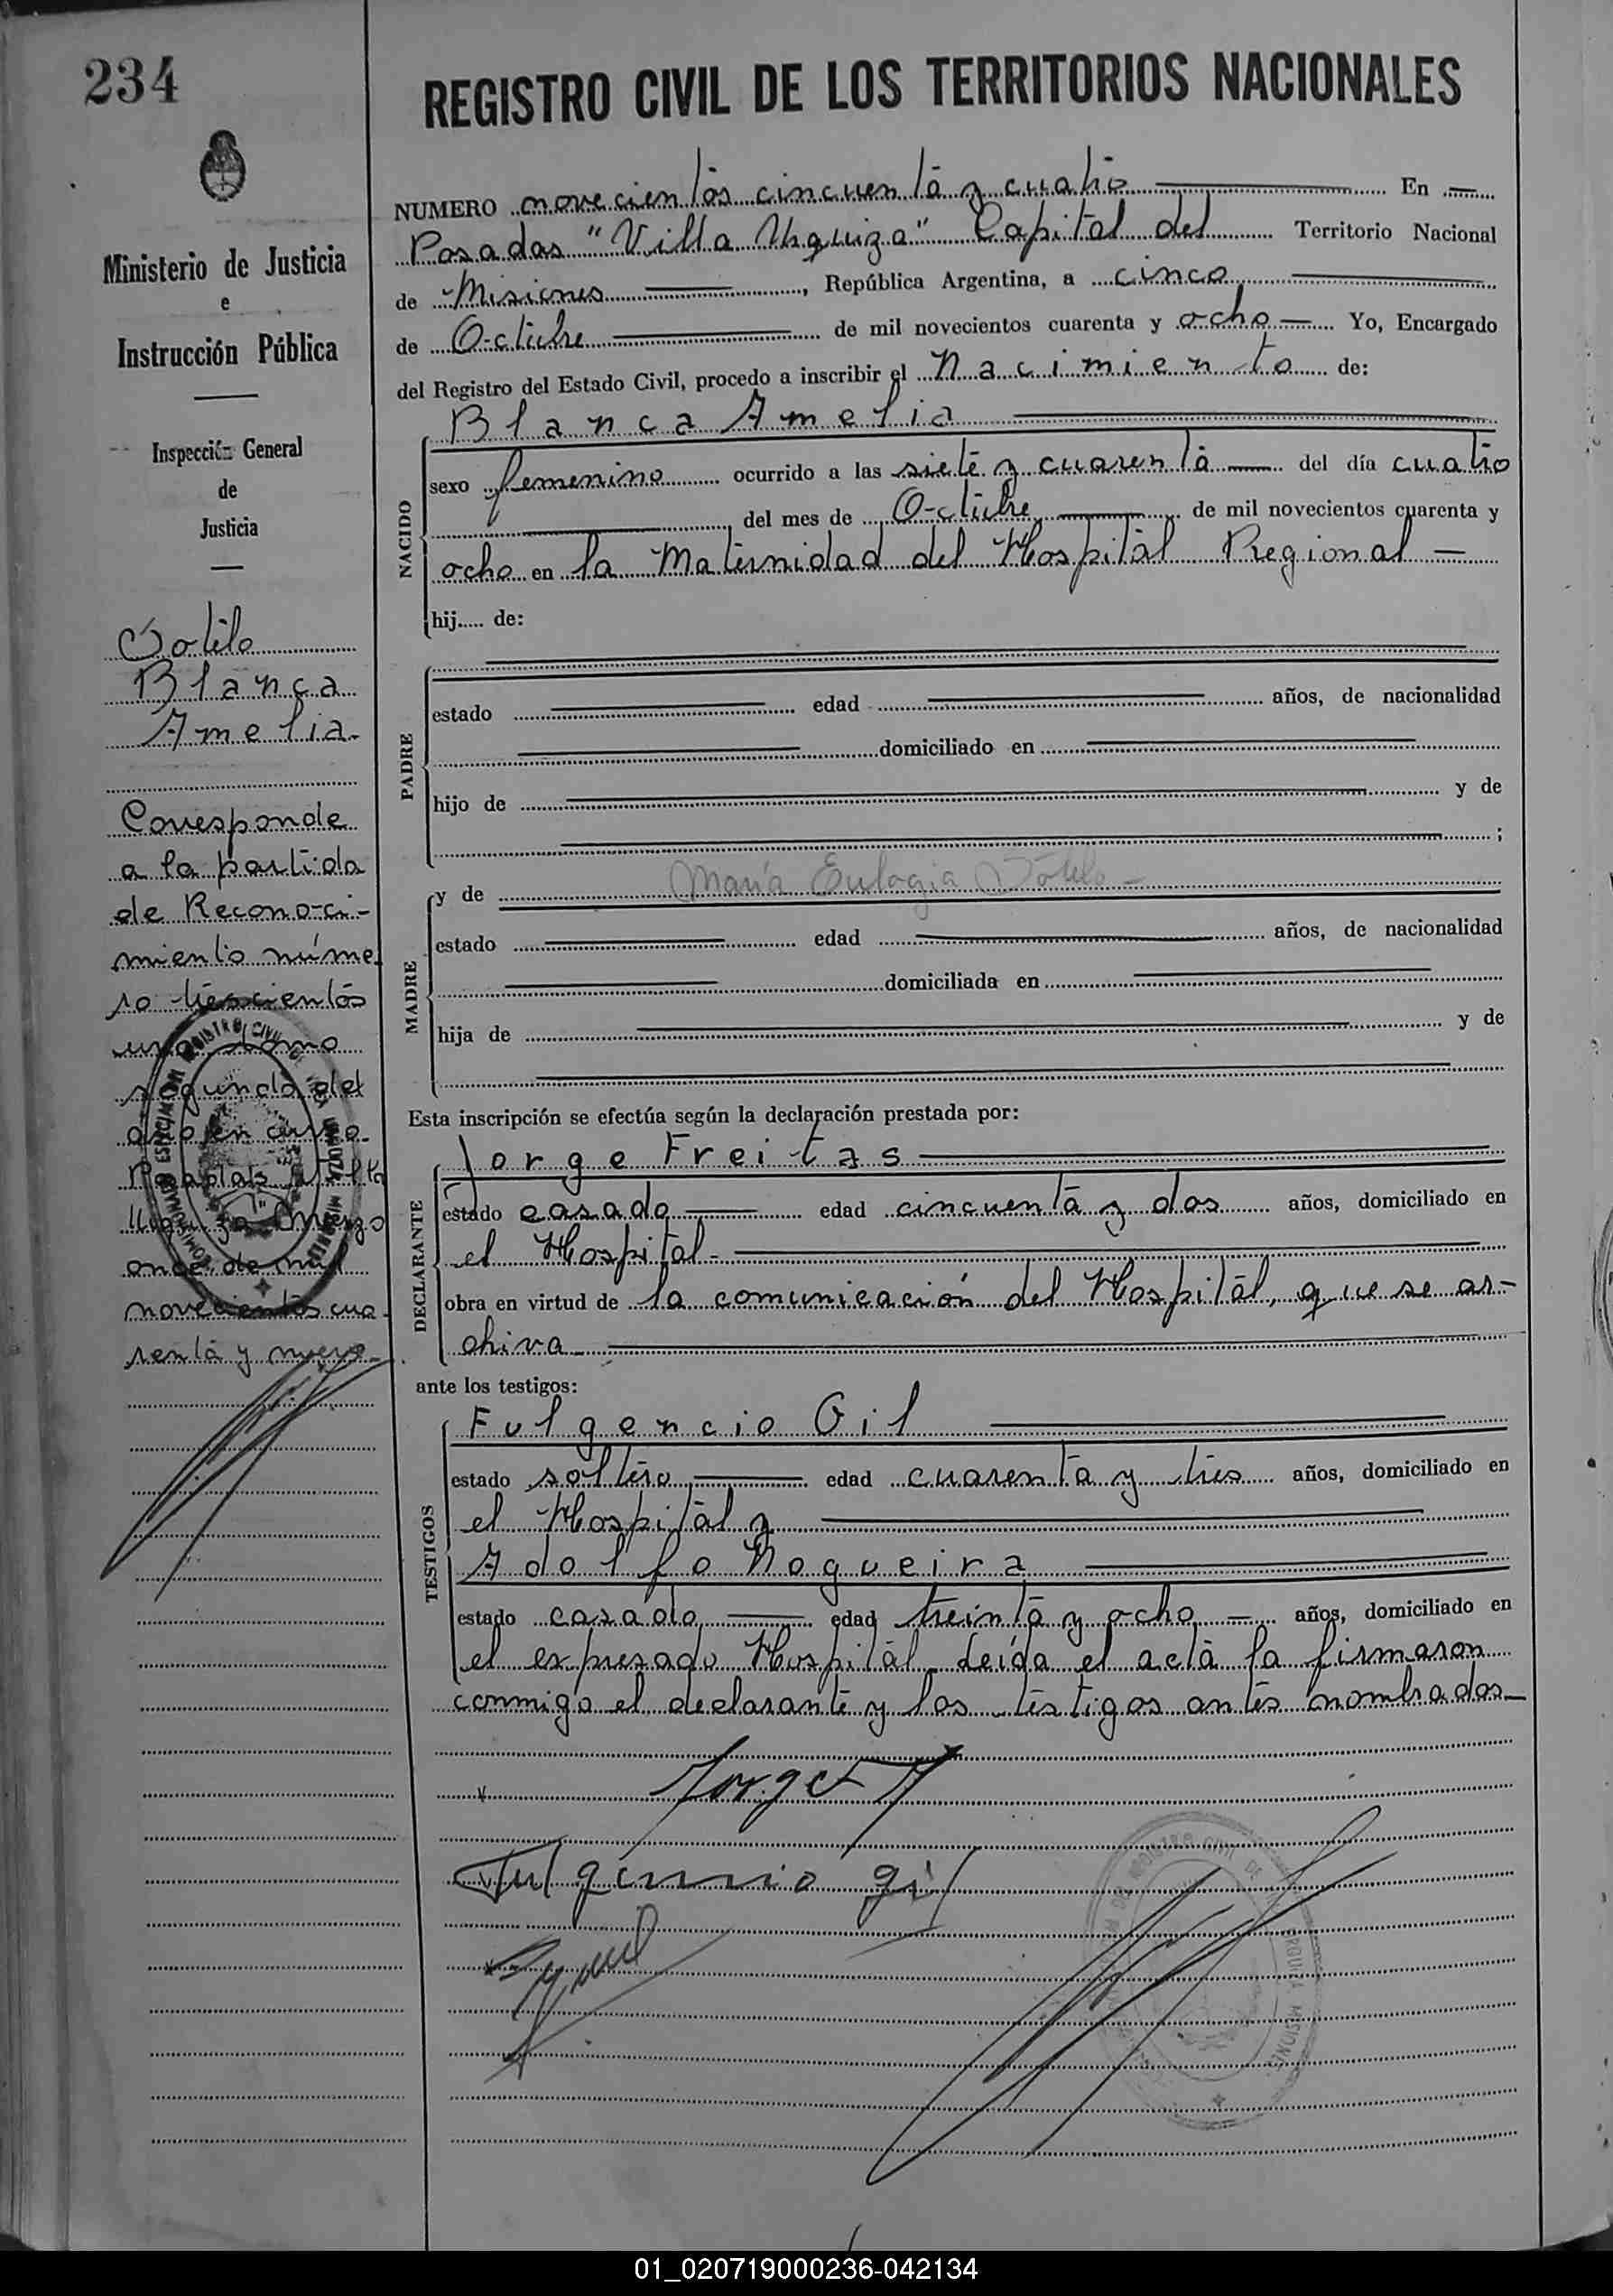 234
REGISTRO CIVIL DE LOS TERRITORIOS NACIONALES
Ministerio de Justicia
e
Instrucción Pública
Inspección General
de
Justicia
Sotelo
Blanca
Amelia.
Corresponde
a la partida
de Reconoci-
miento núme-
ro trescientos
uno tomo
segundo del
año en curso.
Posadas Villa
Urquiza Marzo
once de mil
novecientos cua-
renta y nueve
NUMERO novecientos cincuenta y cuatro En
Posadas "Villa Urquiza" Capital del Territorio Nacional
de Misiones, República Argentina, a cinco
de Octubre de mil novecientos cuarenta y ocho Yo, Encargado
del Registro del Estado Civil, procedo a inscribir el Nacimiento de:
Blanca Amelia
NACIDO
sexo femenino ocurrido a las siete y cuarenta del día cuatro
del mes de Octubre de mil novecientos cuarenta y
ocho en la Maternidad del Hospital Regional
hij..... de:
PADRE
estado edad años, de nacionalidad
domiciliado en
hijo de y de
;
MADRE
y de María Eulogia Sotelo
estado edad años, de nacionalidad
domiciliada en
hija de y de
Esta inscripción se efectúa según la declaración prestada por:
DECLARANTE
Jorge Freitas
estado casado edad cincuenta y dos años, domiciliado en
el Hospital
obra en virtud de la comunicación del Hospital, que se ar-
chiva
ante los testigos:
TESTIGOS
Fulgencio Gil
estado soltero edad cuarenta y tres años, domiciliado en
el Hospital y
Adolfo Nogueira
estado casado edad treinta y ocho años, domiciliado en
el expresado Hospital. Leída el acta la firmaron
conmigo el declarante y los testigos antes nombrados
Jorge F
Fulgencio Gil
REGISTRO CIVIL DE VILLA URQUIZA MISIONES
01_020719000236-042134